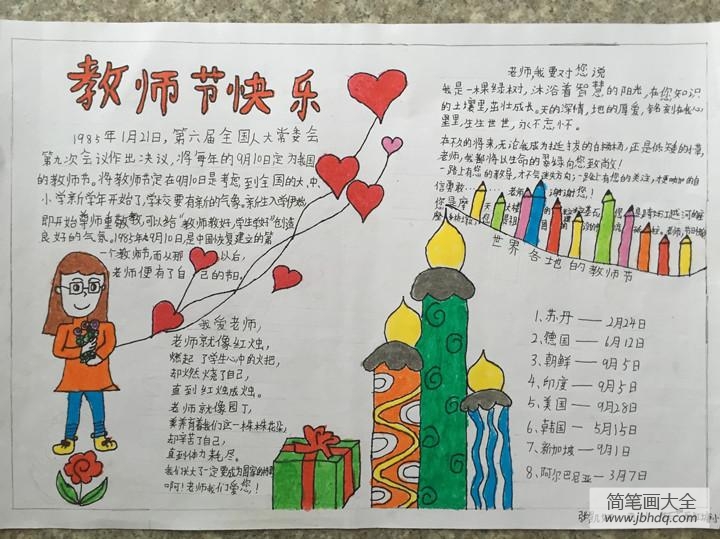 教师节快乐
1985年1月21日，第六届全国人大常委会
第九次会议作出决议，将每年的9月10日定为我国
的教师节。将教师节定在9月10日是考虑到全国的大、中、
小学新学年开始了，学校要有新的气象。新生入学伊始，
即开始尊师重教，可以给"教师教好，学生学好"创造
良好的气氛。1985年9月10日，是中国恢复建立的第
一个教师节，而从那以后，
老师便有了自己的节日。
我爱老师，
老师就像红烛，
燃起了学生心中的火把，
却燃烧了自己，
直到红烛成烛。
老师就像园丁，
我们这一棵
却辛苦了自己，
直到体力耗尽。
我们长大了一定要成为国家的
啊！老师我们爱您！
老师，我要对您说
我是一棵绿树，沐浴着智慧的阳光，在您知识
的土壤里，茁壮成长。天的深情，地的厚爱，铭刻在我心
里，生生世世，永不忘怀。
在不久的将来，无论我成为挺拔的白杨，还是低矮的
老师，我都将以生命的翠绿向您致敬！
一路上有您的教导，才不会迷失方向；一路上有您的关注，才更加的自
信勇敢……老师，谢谢您！
世界各地的教师节
1、苏丹——2月24日
2、德国——6月12日
3、朝鲜——9月5日
4、印度——9月5日
5、美国——9月28日
6、韩国——5月15日
7、新加坡——9月1日
8、阿尔巴尼亚——3月7日
简笔画大全
www.jbhdq.com